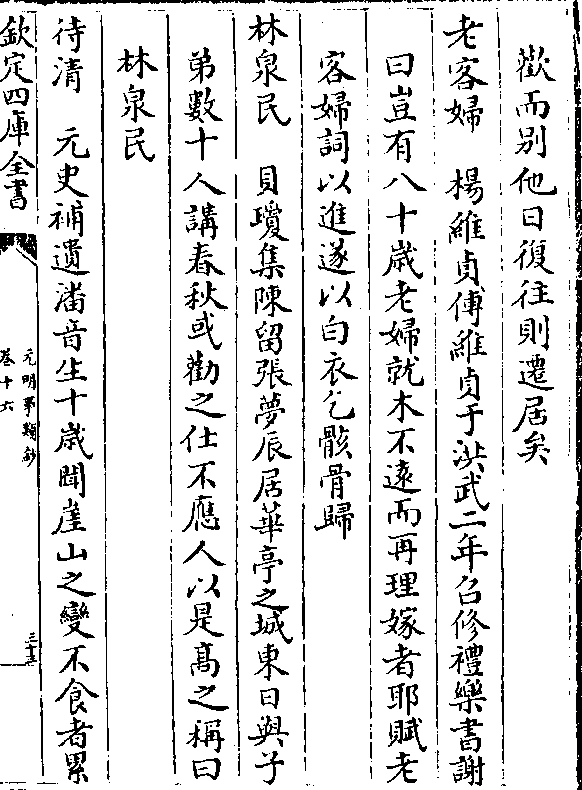 歡而别他日復往則遷居矣
老客婦　楊維貞傳維貞于洪武二年召修禮樂書謝
曰豈有八十歲老婦就木不遠而再理嫁者耶賦老
客婦詞以進遂以白衣乞骸骨歸
林泉民　貝瓊集陳留張夢辰居華亭之城東日與子
弟數十人講春秋或勸之仕不應人以是髙之稱曰
林泉民
待清　元史補遺潘音生十歲聞崖山之變不食者累
欽定四庫全書
元明事類鈔
卷十六
三十三